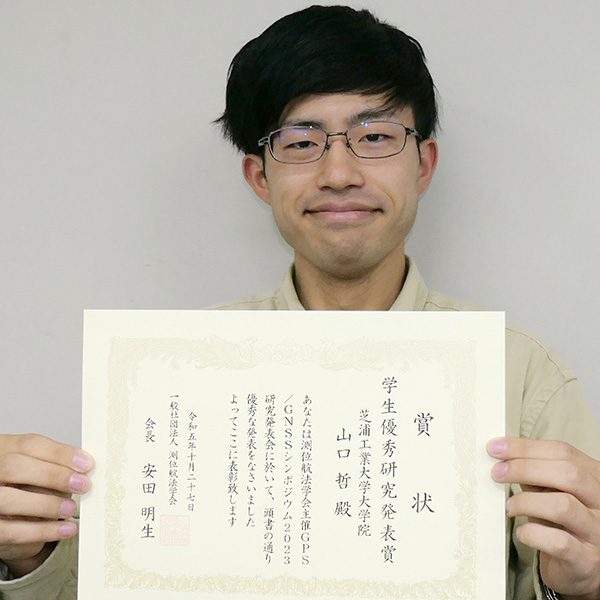 賞状
学生優秀研究発表賞
芝浦工業大学大学院
山口哲殿
あなたは測位航法学会主催GPS
／GNSSシンポジウム2023
研究発表会に於いて、頭書の通り
優秀な発表をなさいました
よってここに表彰致します
令和五年十月二十七日
一般社団法人 測位航法学会
会長 安田明生